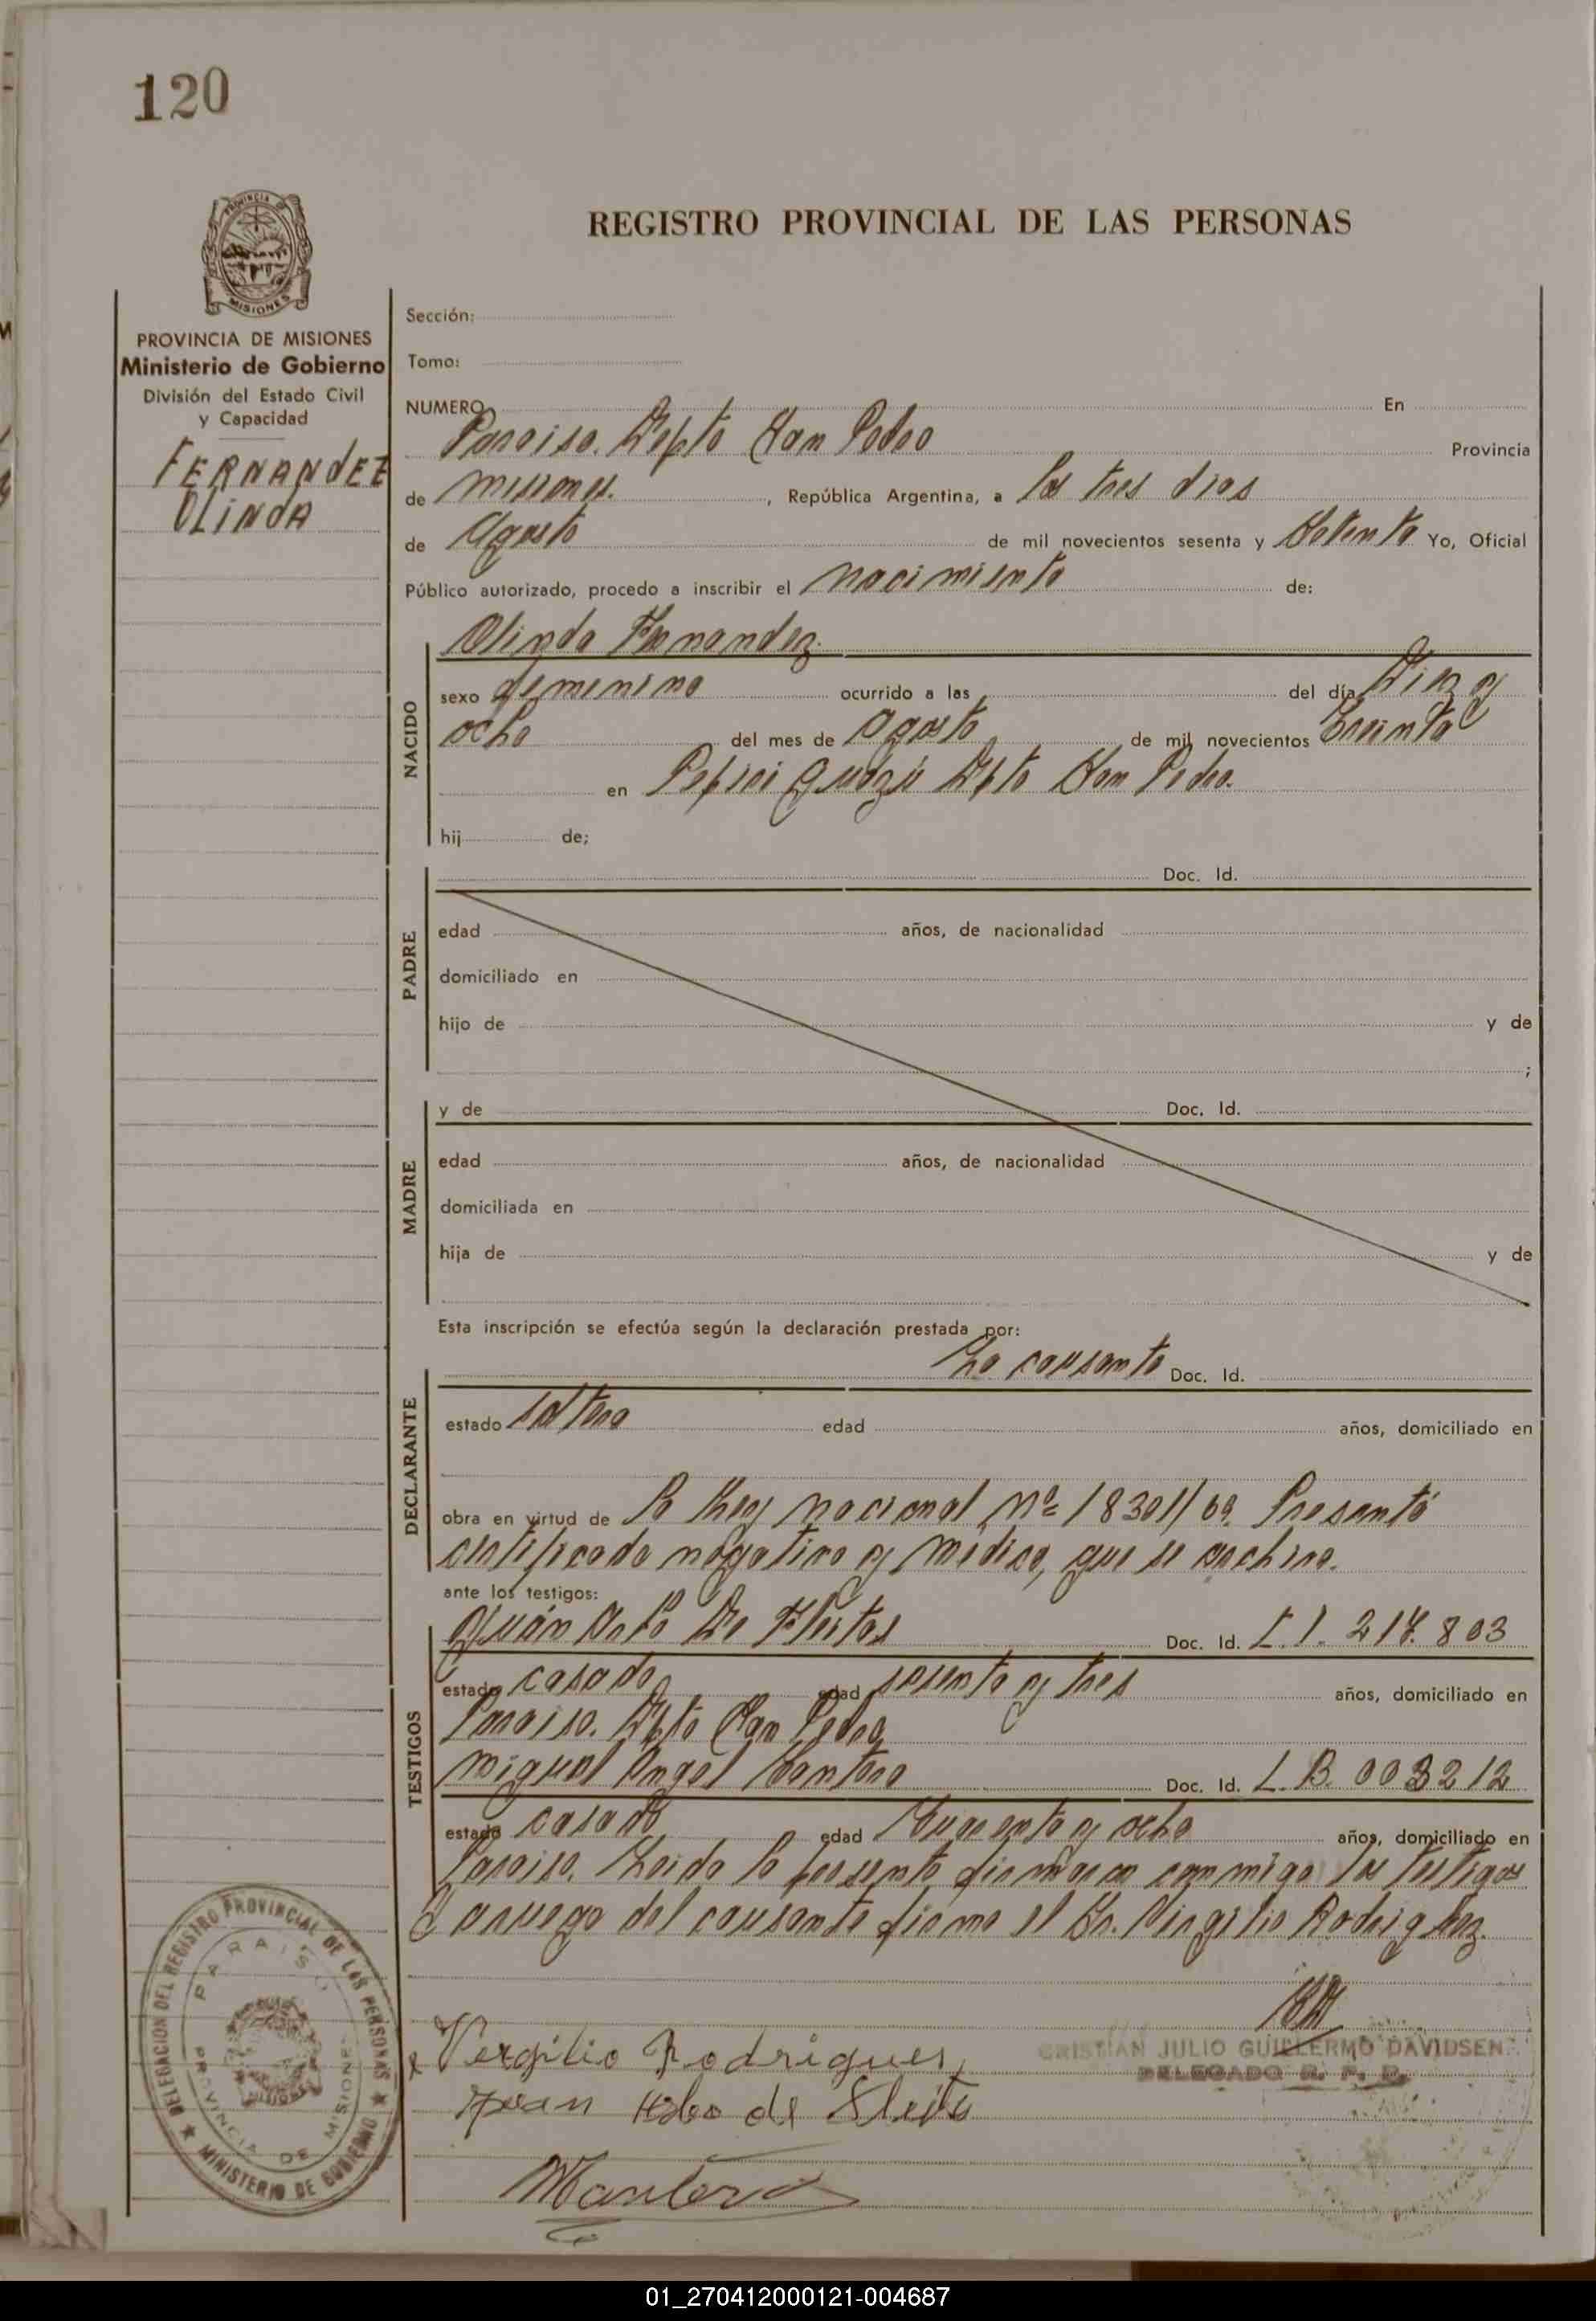 120
PROVINCIA DE
MISIONES
REGISTRO PROVINCIAL DE LAS PERSONAS
PROVINCIA DE MISIONES
Ministerio de Gobierno
División del Estado Civil
y Capacidad
FERNANDEZ
OLINDA
Sección:
Tomo:
NUMERO En
Paraiso. Depto San Pedro Provincia
de Misiones. , República Argentina, a los tres dias
de Agosto de mil novecientos sesenta y setenta Yo, Oficial
Público autorizado, procedo a inscribir el nacimiento de:
NACIDO
Olinda Fernandez.
sexo femenino ocurrido a las del día Diez y
ocho del mes de agosto de mil novecientos treinta
en Pepiri Guazú Depto San Pedro.
hij de;
PADRE
Doc. Id.
edad años, de nacionalidad
domiciliado en
hijo de y de
;
MADRE
y de Doc. Id.
edad años, de nacionalidad
domiciliada en
hija de y de
Esta inscripción se efectúa según la declaración prestada por:
DECLARANTE
La causante Doc. Id.
estado soltera edad años, domiciliado en
obra en virtud de la Ley nacional Nº 18301/69. Presentó
certificado negativo y médico, que se archiva.
ante los testigos:
TESTIGOS
Juán De Fleitas Doc. Id. L.I. 217.803
estado casado edad sesenta y tres años, domiciliado en
Paraiso. Depto San Pedro
Miguel Angel Mantero Doc. Id. L.B. 003212
estado casado edad cuarenta y ocho años, domiciliado en
Paraiso. Leida la presente firmaron conmigo los testigos
a ruego del causante firma el Sr. Virgilio Rodriguez.
Vergilio Rodrigues
CRISTIAN JULIO GUILLERMO DAVIDSEN
DELEGADO R. P. P.
Juan de Fleita
Mantero
DELEGACIÓN DEL REGISTRO PROVINCIAL DE LAS PERSONAS
PARAISO
PROVINCIA DE MISIONES
MINISTERIO DE GOBIERNO
01_270412000121-004687